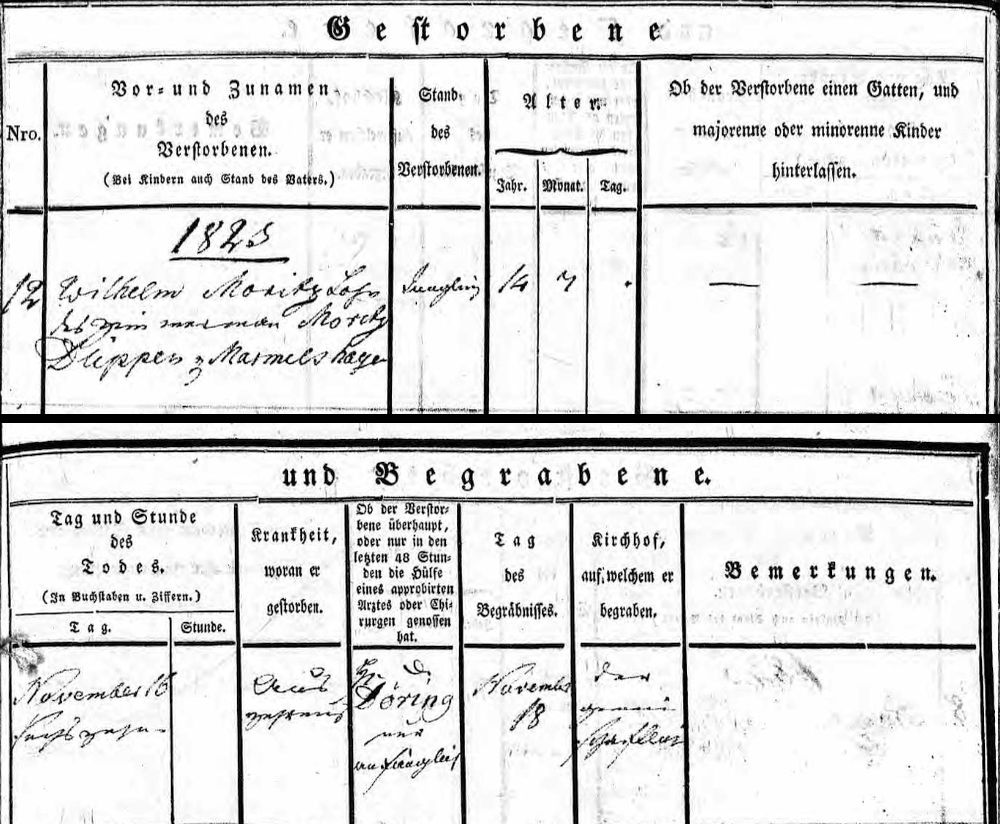 Gestorbene
Nro.
Vor- und Zunamen
des
Verstorbenen.
(Bei Kindern auch Stand des Vaters.)
Stand
des
Verstorbenen.
Alter.
Jahr. Monat. Tag.
Ob der Verstorbene einen Gatten, und
majorenne oder minorenne Kinder
hinterlassen.
1823
12 Wilhelm Moritz Sohn Jüngling 14 7 . — —
des Moritz
Düppen z Marmelshagen
und Begrabene.
Tag und Stunde
des
Todes.
(In Buchstaben u. Ziffern.)
Tag. Stunde.
Krankheit,
woran er
gestorben.
Ob der Verstor-
bene überhaupt,
oder nur in den
letzten 48 Stun-
den die Hülfe
eines approbirten
Arztes oder Chi-
rurgen genossen
hat.
Tag
des
Begräbnisses.
Kirchhof,
auf welchem er
begraben.
Bemerkungen.
November 16
sechszehn
Aus
zehrung
Döring
November
18
der